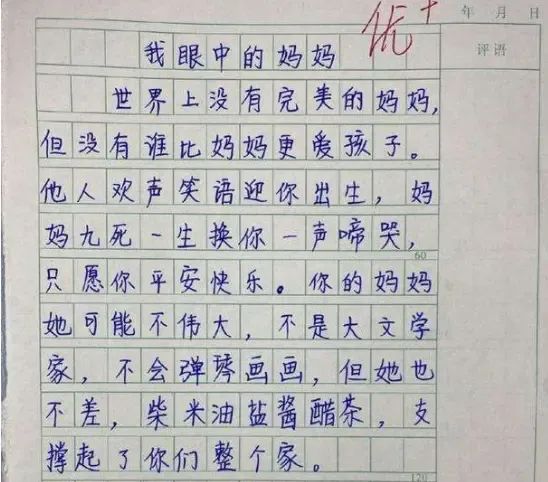 优+
年 月 日
评语
我眼中的妈妈
世界上没有完美的妈妈,
但没有谁比妈妈更爱孩子。
他人欢声笑语迎你出生,妈
妈九死一生换你一声啼哭,
60
只愿你平安快乐。你的妈妈
她可能不伟大,不是大文学
家,不会弹琴画画,但她也
不差,柴米油盐酱醋茶,支
撑起了你们整个家。
120